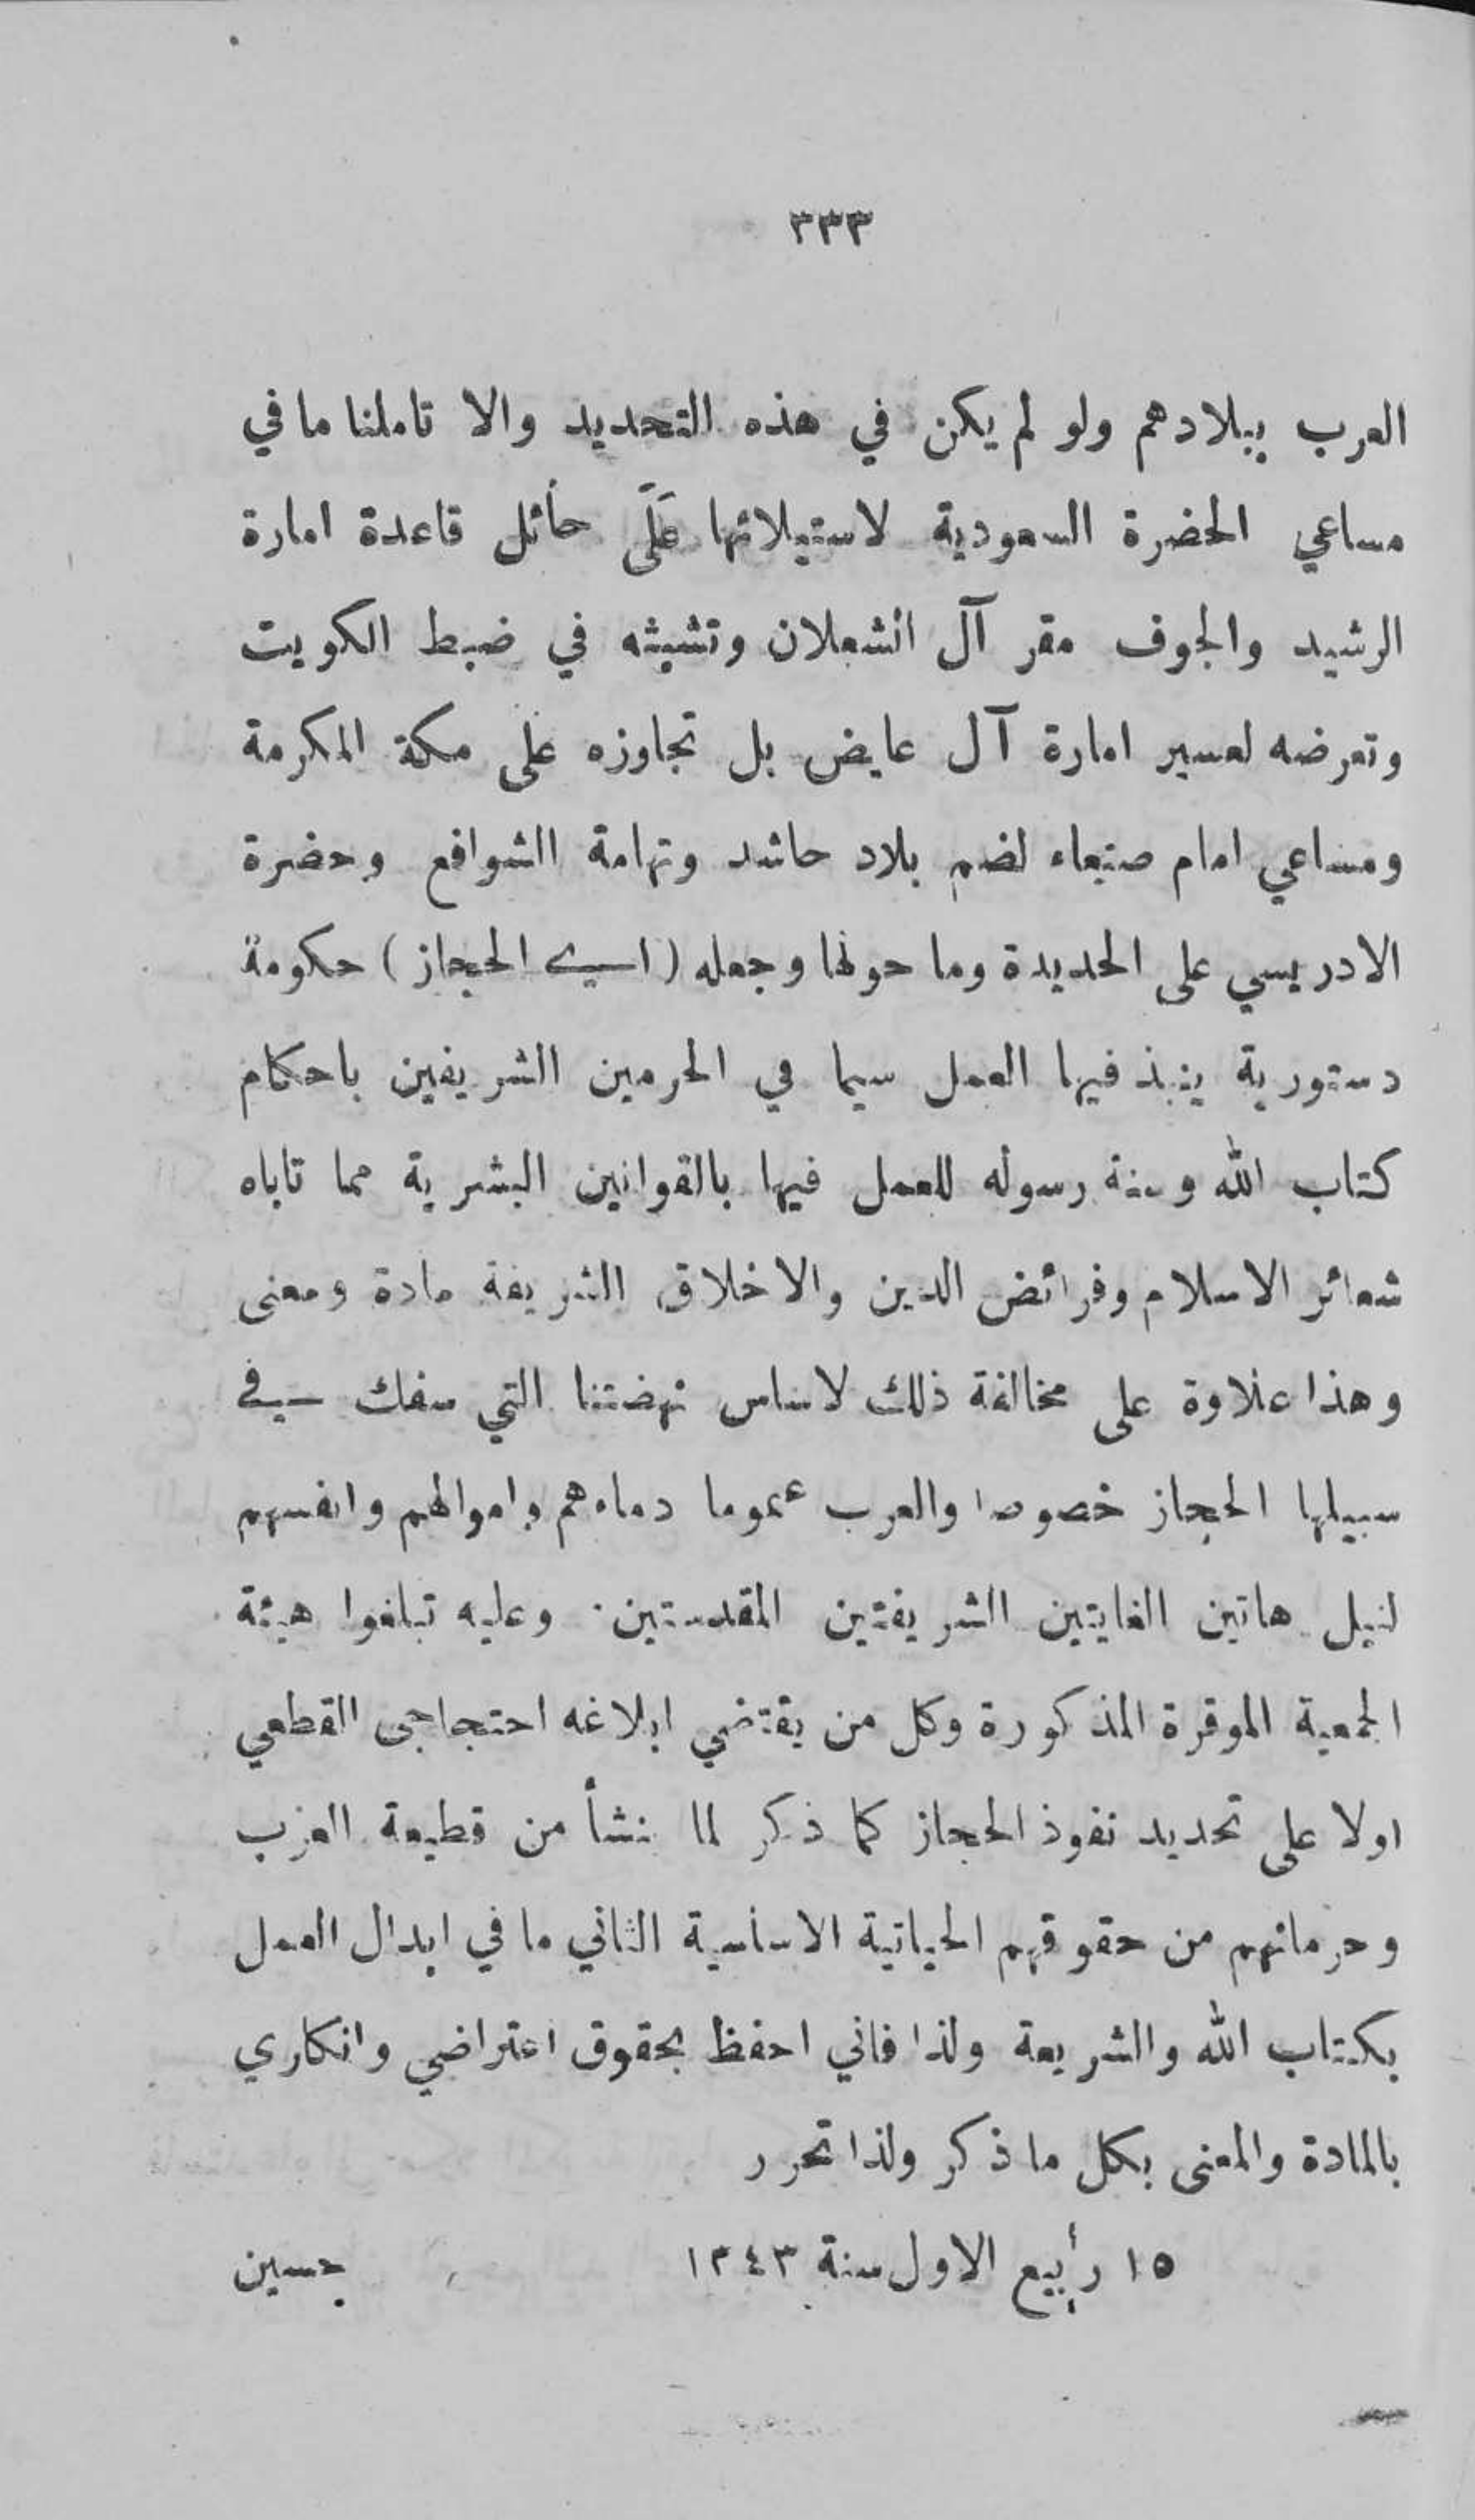 ٣٣٣
العرب ببلادهم ولو لم يكن في هذه التحديد والا تاملنا ما في
مساعي الحضرة السعودية لاستيلائها عَلَى حائل قاعدة امارة
الرشيد والجوف مقر آل الشعلان وتشبثه في ضبط الكويت
وتعرضه لعسير امارة آل عايض بل تجاوزه على مكة المكرمة
ومساعي امام صنعاء لضم بلاد حاشد وتهامة الشوافع وحضرة
الادريسي على الحديدة وما حولها وجعله (اي الحجاز) حكومة
دستورية ينبذ فيها العمل سيما في الحرمين الشريفين باحكام
كتاب الله وسنة رسوله للعمل فيها بالقوانين البشرية مما تاباه
شعائر الاسلام وفرائض الدين والاخلاق الشريفة مادة ومعنى
وهذا علاوة على مخالفة ذلك لاساس نهضتنا التي سفك في
سبيلها الحجاز خصوصا والعرب عموما دماءهم واموالهم وانفسهم
لنيل هاتين الغايتين الشريفتين المقدستين. وعليه تبلغوا هيئة
الجمعية الموقرة المذكورة وكل من يقتضي ابلاغه احتجاجي القطعي
اولا على تحديد نفوذ الحجاز كما ذكر لما ينشأ من قطيعة العرب
وحرمانهم من حقوقهم الحياتية الاساسية الثاني ما في ابدال العمل
بكتاب الله والشريعة ولذا فاني احفظ بحقوق اعتراضي وانكاري
بالمادة والمعنى بكل ما ذكر ولذا تحرر
١٥ ربيع الاول سنة ١٣٤٣ حسين